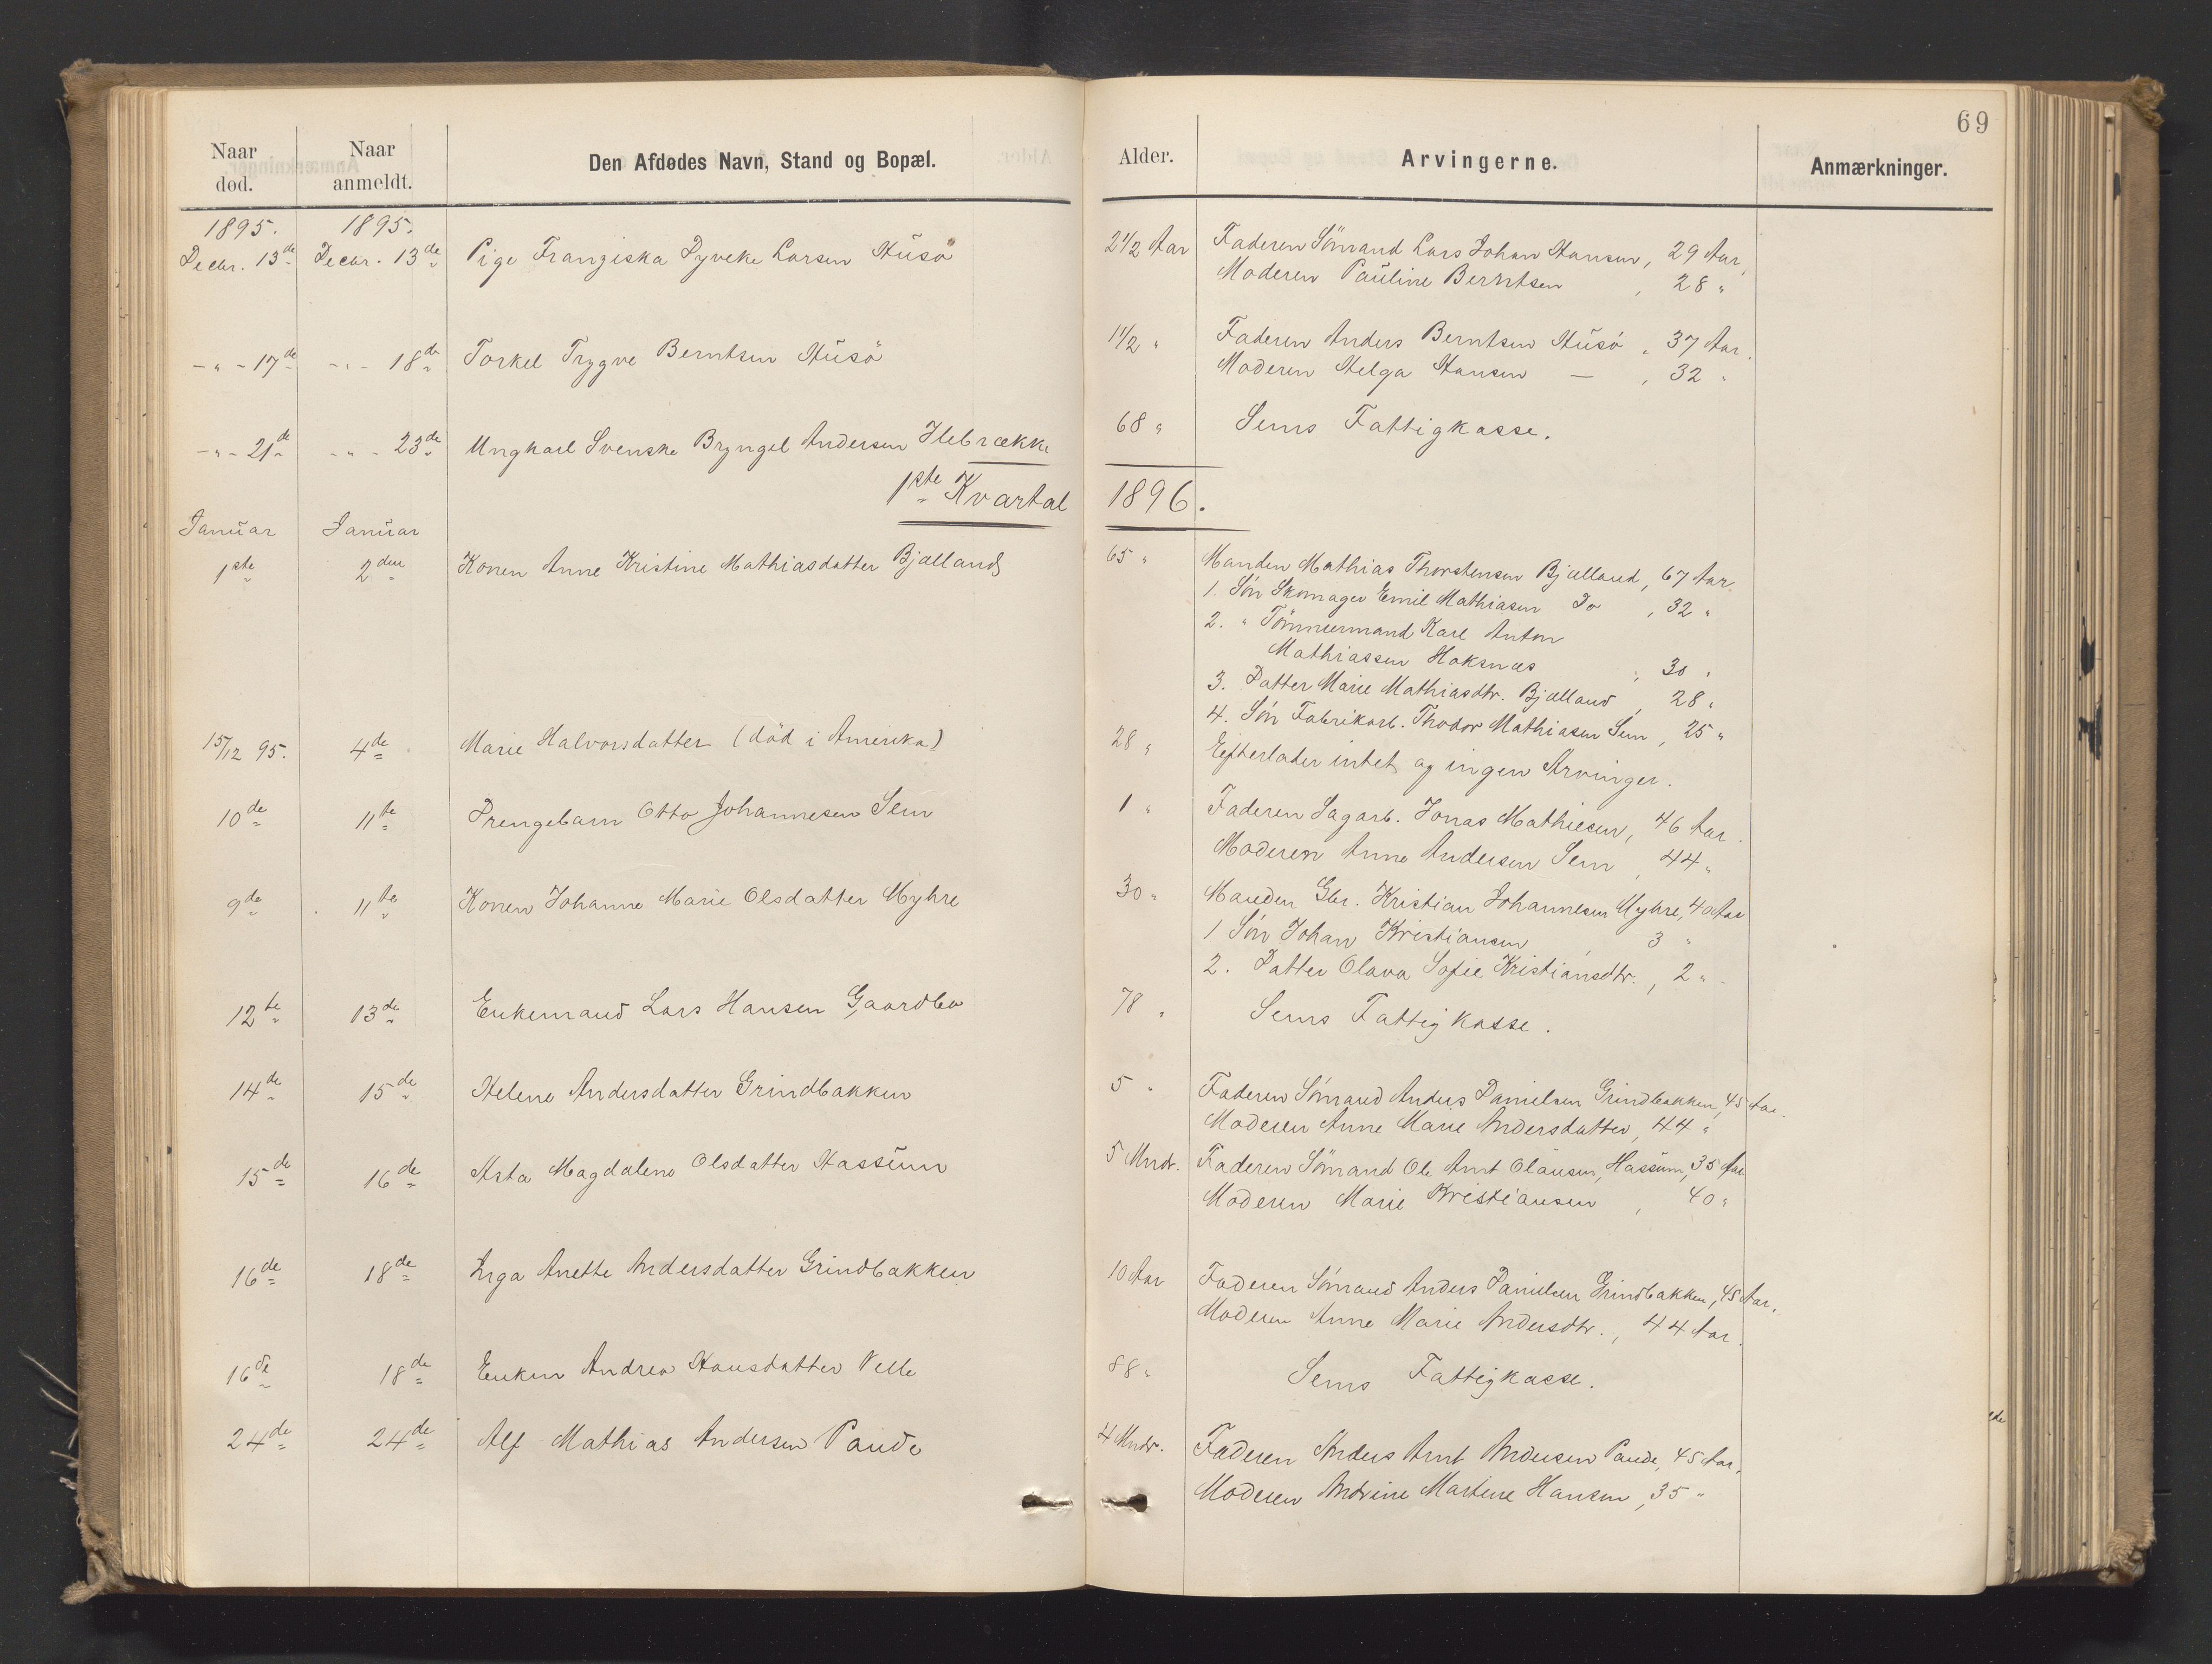 69
Naar død.
Naar anmeldt.
Den Afdødes Navn, Stand og Bopæl.
Alder.
Arvingerne.
Anmærkninger.
1895. 1895.
Decbr. 13de Decbr. 13de Pige Franziska Dyveke Larsen Husö 2 1/2 Aar Faderen Sömand Lars Johan Hansen, 29 Aar,
Moderen Pauline Berntsen , 28 "
- " - 17de - " - 18de Torkel Trygve Berntsen Husö 1 1/2 " Faderen Anders Berntsen Husö , 37 Aar.
Moderen Helga Hansen — , 32 "
- " - 21de - " - 23de Ungkarl Svenske Bryngel Andersen Ilebrække 68 " Sems Fattigkasse.
1ste Kvartal 1896.
Januar Januar
1ste 2den Konen Anne Kristine Mathiasdatter Bjælland 65 " Manden Mathias Thorstensen Bjælland, 67 Aar.
1. Sön Skomager Emil Mathiasen Do , 32 "
2. " Tömmermand Karl Anton
Mathiassen Hoksnæs , 30 "
3. Datter Marie Mathiasdtr. Bjælland , 28 "
4. Sön Fabrikarb. Thodor Mathiasen Sem , 25 "
15/12 95. 4de Marie Halvorsdatter (död i Amerika) 28 " Efterlader intet og ingen Arvinger.
10de 11te Drengebarn Otto Johannesen Sem 1 " Faderen Sagarb. Jonas Mathiesen, 46 Aar.
Moderen Anne Andersen Sem , 44 "
9de 11te Konen Johanne Marie Olsdatter Myhre 30 " Manden Gbr. Kristian Johannesen Myhre, 40 Aar
1 Sön Johan Kristiansen , 3 "
2. Datter Olava Sofie Kristiansdtr. , 2 "
12te 13de Enkemand Lars Hansen Gaardbo 78 " Sems Fattigkasse.
14de 15de Helene Andersdatter Grindbakken 5 " Faderen Sömand Anders Danielsen Grindbakken, 45 Aar.
Moderen Anne Marie Andersdatter, 44 "
15de 16de Asta Magdalene Olsdatter Hassum 5 Mndr. Faderen Sömand Ole Amt Olausen, Hassum, 35 Aar
Moderen Marie Kristiansen , 40 "
16de 18de Inga Anette Andersdatter Grindbakken 10 Aar Faderen Sömand Anders Danielsen Grindbakken, 45 Aar.
Moderen Anne Marie Andersdtr. , 44 Aar.
16de 18de Enken Andrea Hansdatter Velle 88 " Sems Fattigkasse.
24de 24de Alf Mathias Andersen Paude 4 Mndr. Faderen Anders Arnt Andersen Paude, 45 Aar.
Moderen Andrine Martine Hansen, 35 "